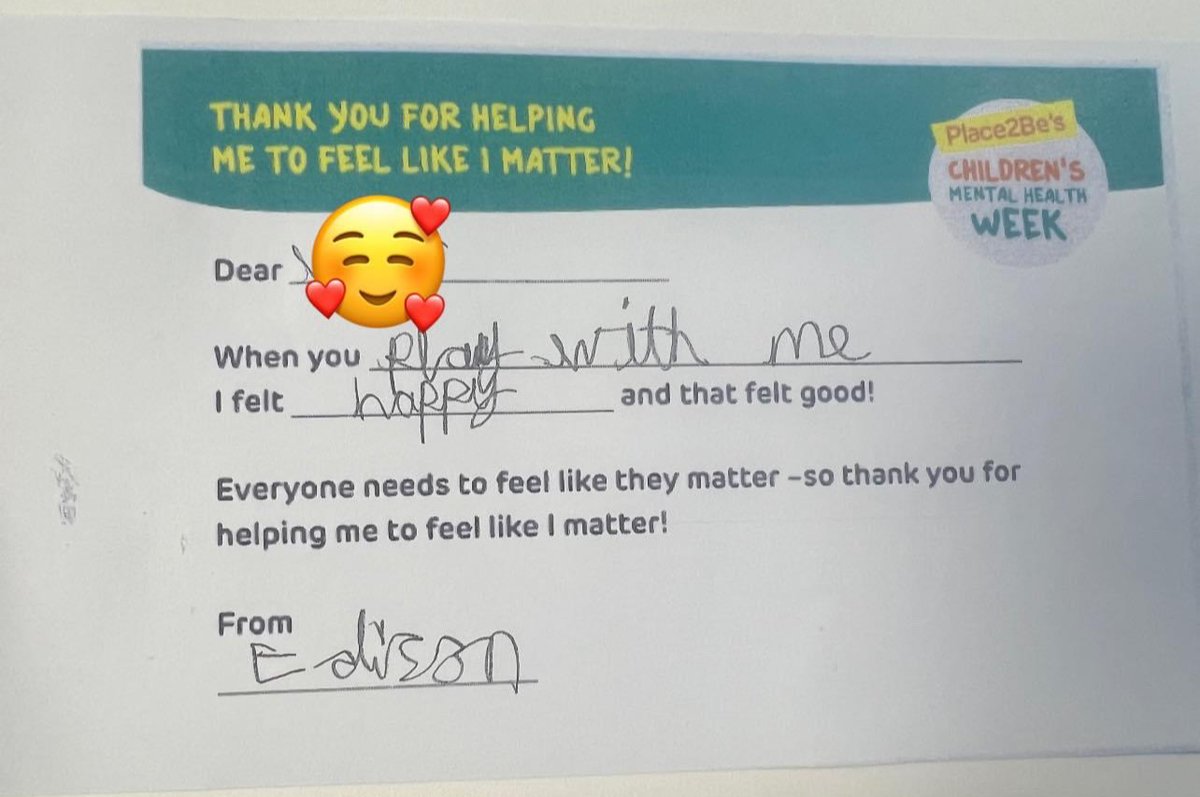 THANK YOU FOR HELPING
ME TO FEEL LIKE I MATTER!
Place2Be's
CHILDREN'S
MENTAL HEALTH
WEEK
Dear
When you play with me
I felt happy and that felt good!
Everyone needs to feel like they matter –so thank you for
helping me to feel like I matter!
From
Edison